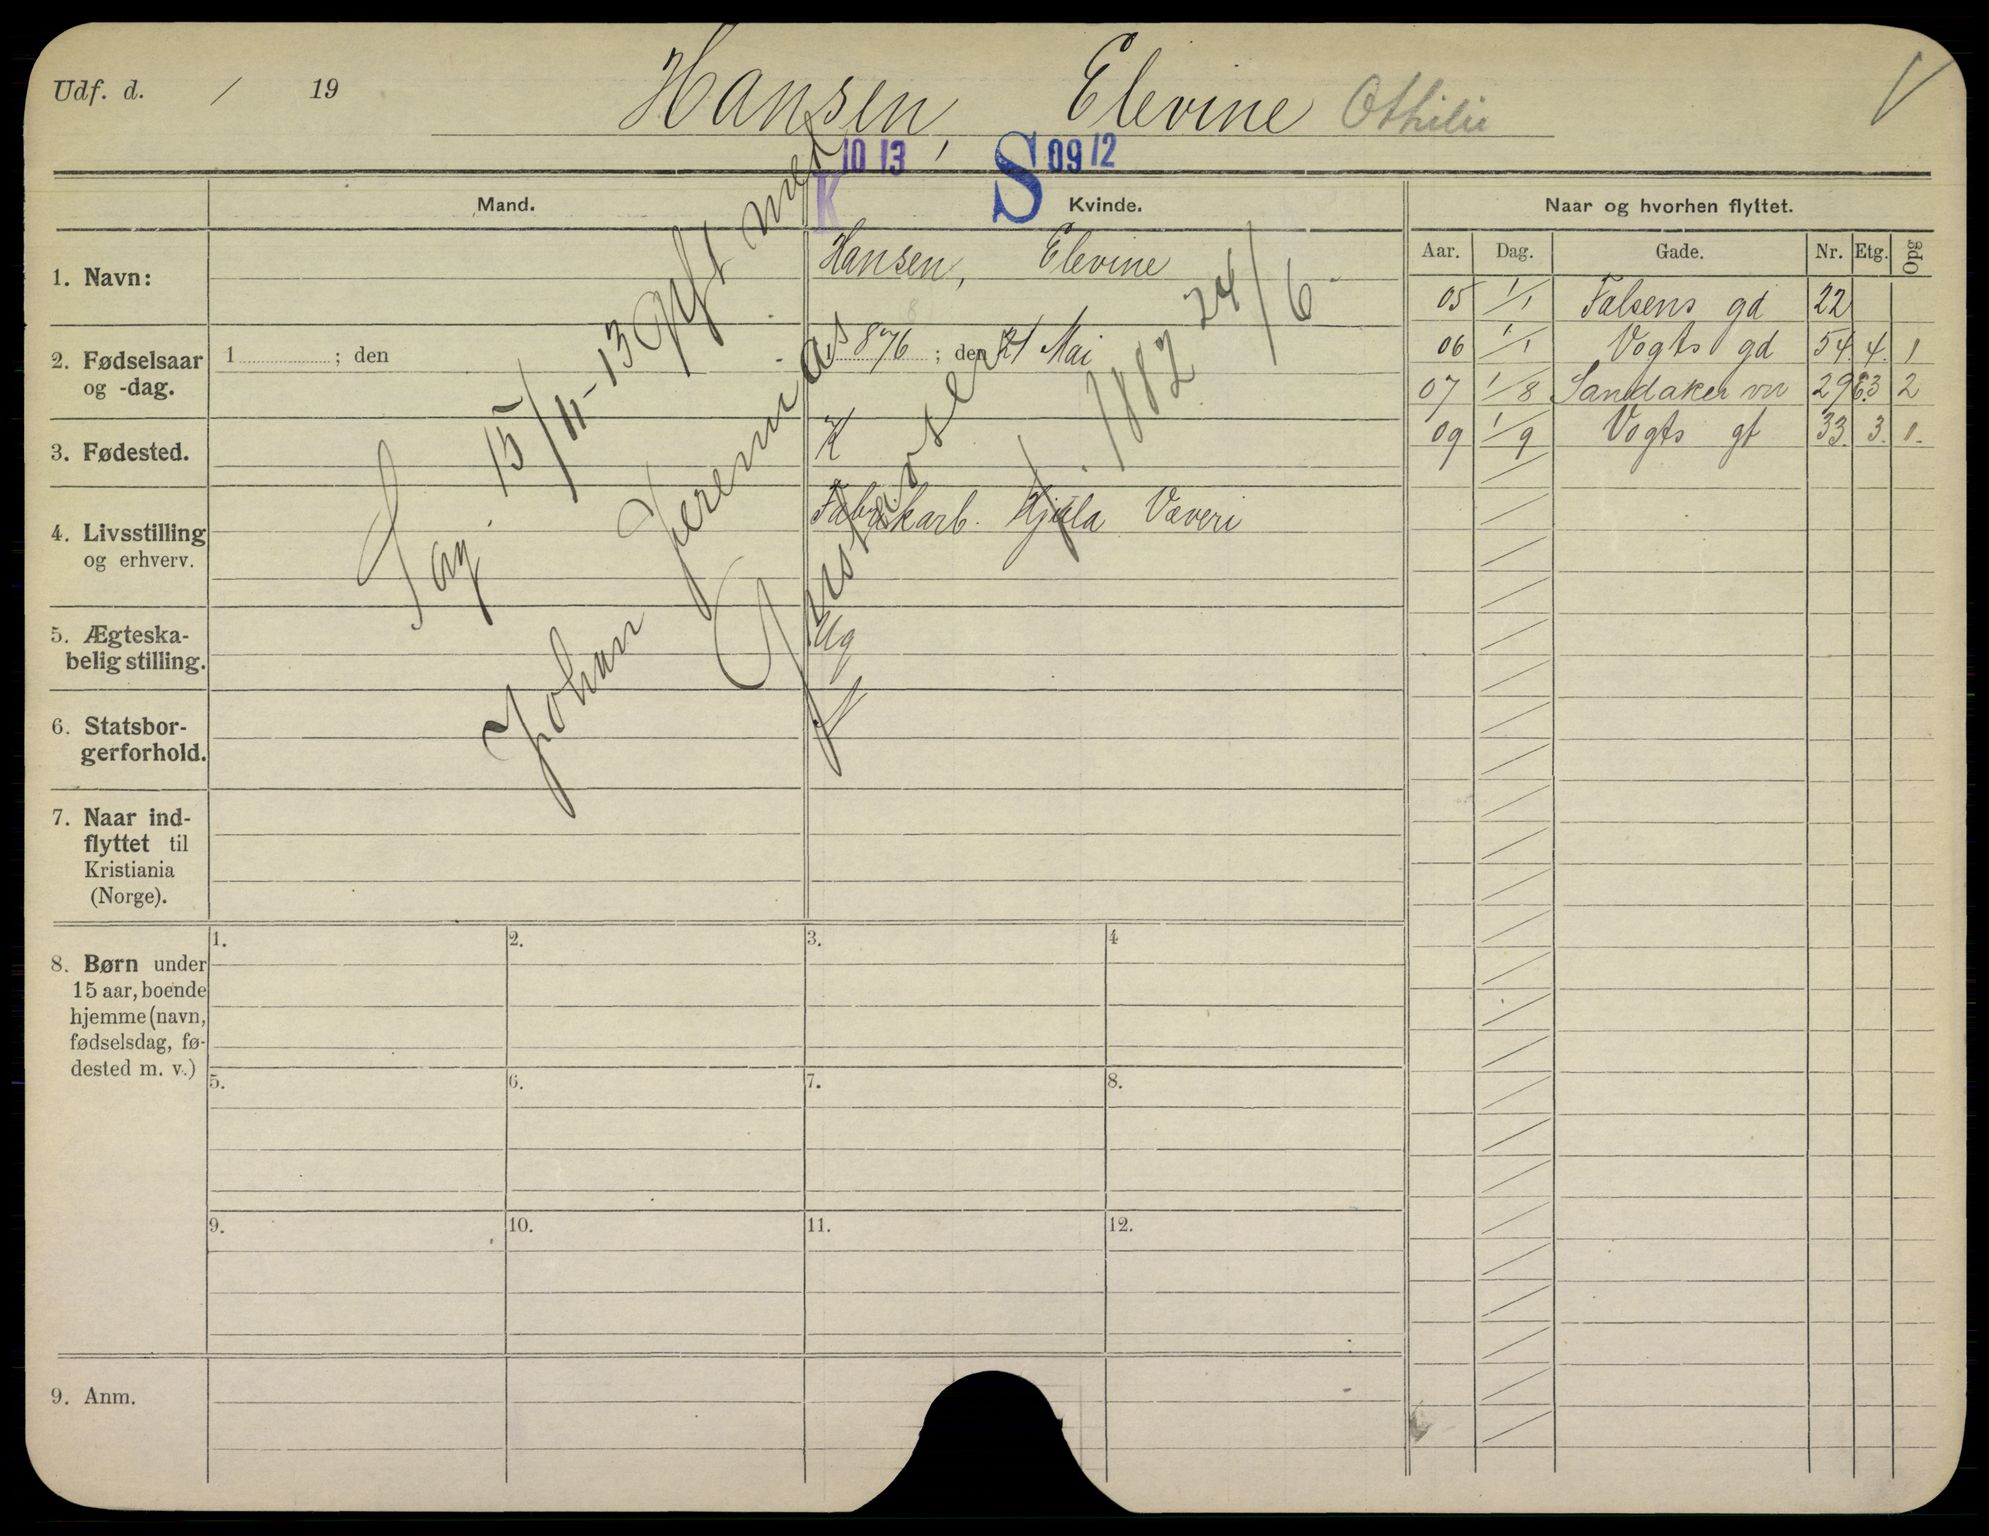 Udf. d. / 19
Hansen, Elevine Othilie
V
K 10 13
S 09 12
Mand.
Kvinde.
Naar og hvorhen flyttet.
Aar. Dag. Gade. Nr. Etg. Opg
05 1/1 Falsens gd 22
06 1/1 Vogts gd 54. 4. 1
07 1/8 Sandaker vn 29 3 2
09 1/9 Vogts gt 33. 3. 1.
1. Navn:
Hansen, Elevine
2. Fødselsaar
og -dag.
1 ; den
1876 ; den 21 Mai
3. Fødested.
K
4. Livsstilling
og erhverv.
Fabrikarb. Hjula Væveri
5. Ægteska-
belig stilling.
Ug
6. Statsbor-
gerforhold.
N
7. Naar ind-
flyttet til
Kristiania
(Norge).
15/11-13 gift med
Johan Jeremias
f. 1882 24/6
8. Børn under
15 aar, boende
hjemme (navn,
fødselsdag, fø-
dested m. v.)
1. 2. 3. 4
5. 6. 7. 8.
9. 10. 11. 12.
9. Anm.